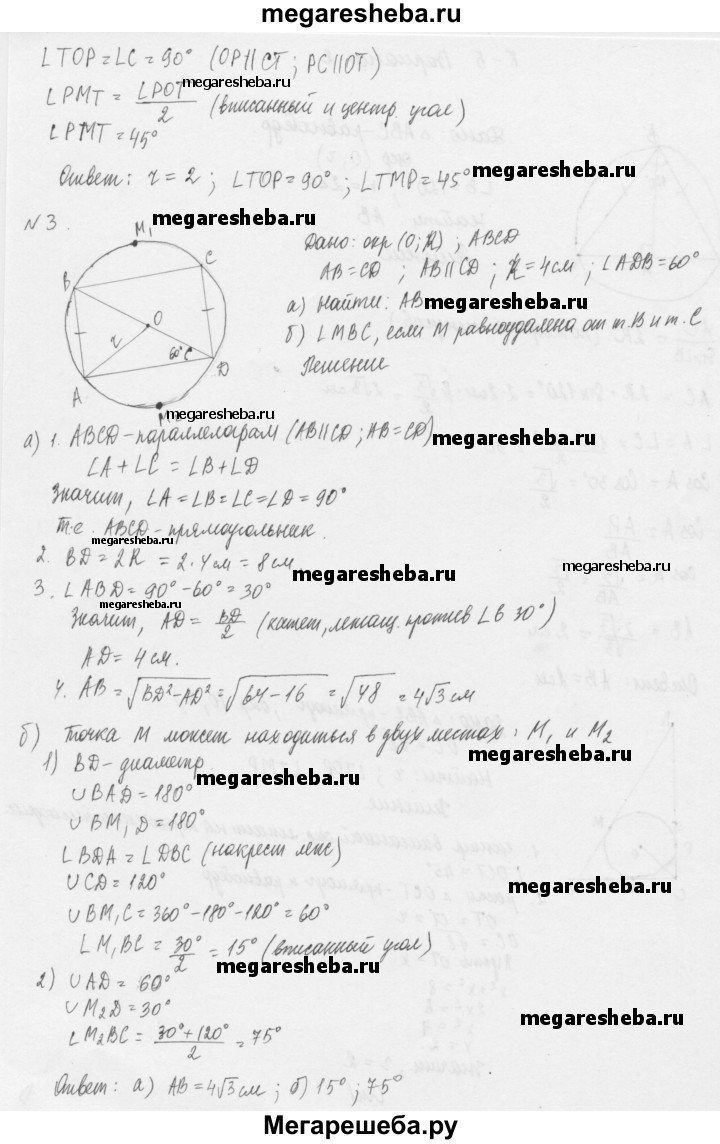 megaresheba.ru
∠TOP = ∠C = 90° (OP||CT ; PC||OT)
megaresheba.ru
∠PMT = ∠POT/2 (вписанный и центр. угол)
∠PMT = 45°
Ответ: r = 2 ; ∠TOP = 90° ; ∠TMP = 45°
megaresheba.ru
N 3.
megaresheba.ru
M₁
B
C
O
r
60°
A
D
M
Дано: окр (O; R) ; ABCD
AB = CD ; AB||CD ; R = 4см ; ∠ADB = 60°
а) Найти: AB
megaresheba.ru
б) ∠MBC, если M равноудалена от т. B и т. C
Решение
megaresheba.ru
а) 1. ABCD - параллелограм (AB||CD ; AB = CD)
megaresheba.ru
∠A + ∠C = ∠B + ∠D
Значит, ∠A = ∠B = ∠C = ∠D = 90°
Т.е. ABCD - прямоугольник.
megaresheba.ru
2. BD = 2R = 2·4см = 8см
megaresheba.ru
3. ∠ABD = 90° - 60° = 30°
megaresheba.ru
Значит, AD = BD/2 (катет, лежащ. против ∠в 30°)
AD = 4 см.
megaresheba.ru
4. AB = √BD² - AD² = √64 - 16 = √48 = 4√3 см
б) Точка M может находиться в двух местах: M₁ и M₂
1) BD - диаметр
megaresheba.ru
∪BAD = 180°
∪BM₁D = 180°
megaresheba.ru
∠BDA = ∠DBC (накрест леж)
∪CD = 120°
megaresheba.ru
∪BM₁C = 360° - 180° - 120° = 60°
∠M₁BC = 30°/2 = 15° (вписанный угол)
megaresheba.ru
2) ∪AD = 60°
∪M₂D = 30°
megaresheba.ru
∠M₂BC = 30° + 120°/2 = 75°
Ответ: а) AB = 4√3 см ; б) 15° ; 75°
Мегарешеба.ру